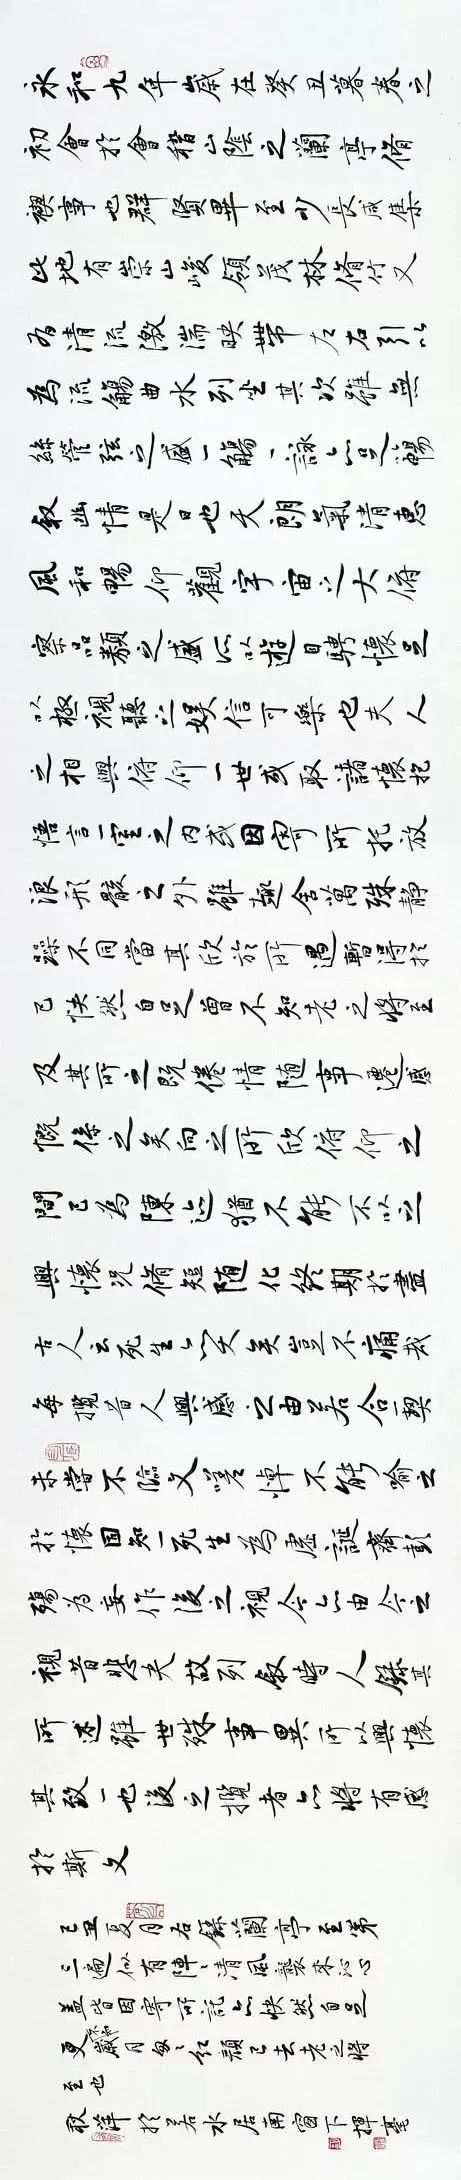 永和九年歲在癸丑暮春之
初會於會稽山陰之蘭亭脩
禊事也群賢畢至少長咸集
此地有崇山峻領茂林脩竹又
有清流激湍映帶左右引以
為流觴曲水列坐其次雖無
絲管弦之盛一觴一詠亦足暢
叙幽情是日也天朗氣清惠
風和暢仰觀宇宙之大俯
察品類之盛所以遊目騁懷足
以極視聽之娛信可樂也夫人
之相與俯仰一世或取諸懷抱
悟言一室之内或因寄所托放
浪形骸之外雖趣舍萬殊静
躁不同當其欣於所遇暫得於
己怏然自足曾不知老之將至
及其所之既倦情随事遷感
慨係之矣向之所欣俯仰之
間已為陳迹猶不能不以之
興懷況脩短随化終期於盡
古人云死生亦大矣豈不痛哉
每攬昔人興感之由若合一契
未嘗不臨文嗟悼不能喻之
於懷固知一死生為虛誕齊彭
殤為妄作後之視今亦由今之
視昔悲夫故列叙時人錄其
所述雖世殊事異所以興懷
其致一也後之攬者亦將有感
於斯文
己丑夏月右錄蘭亭至第
三遍似有陣陣清風襲來沁心
蓋皆因寄所託亦怏然自足
更不知歲月匆匆紅顏已去老之將
至也
於若水居南窗下揮毫